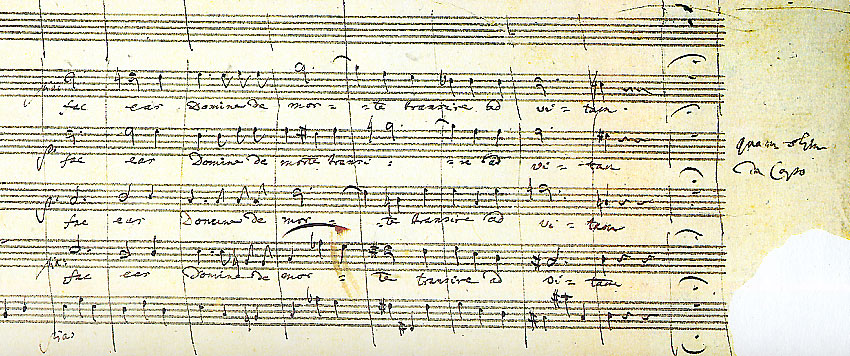 fac eas Domine de mor = te transire ad vi = tam.
fac eas Domine de morte transi = re ad vi = tam
quam olim
Da Capo
fac eas Domine de mor = te transire ad vi = tam
fac eas Domine de mor = te transire ad vi = tam